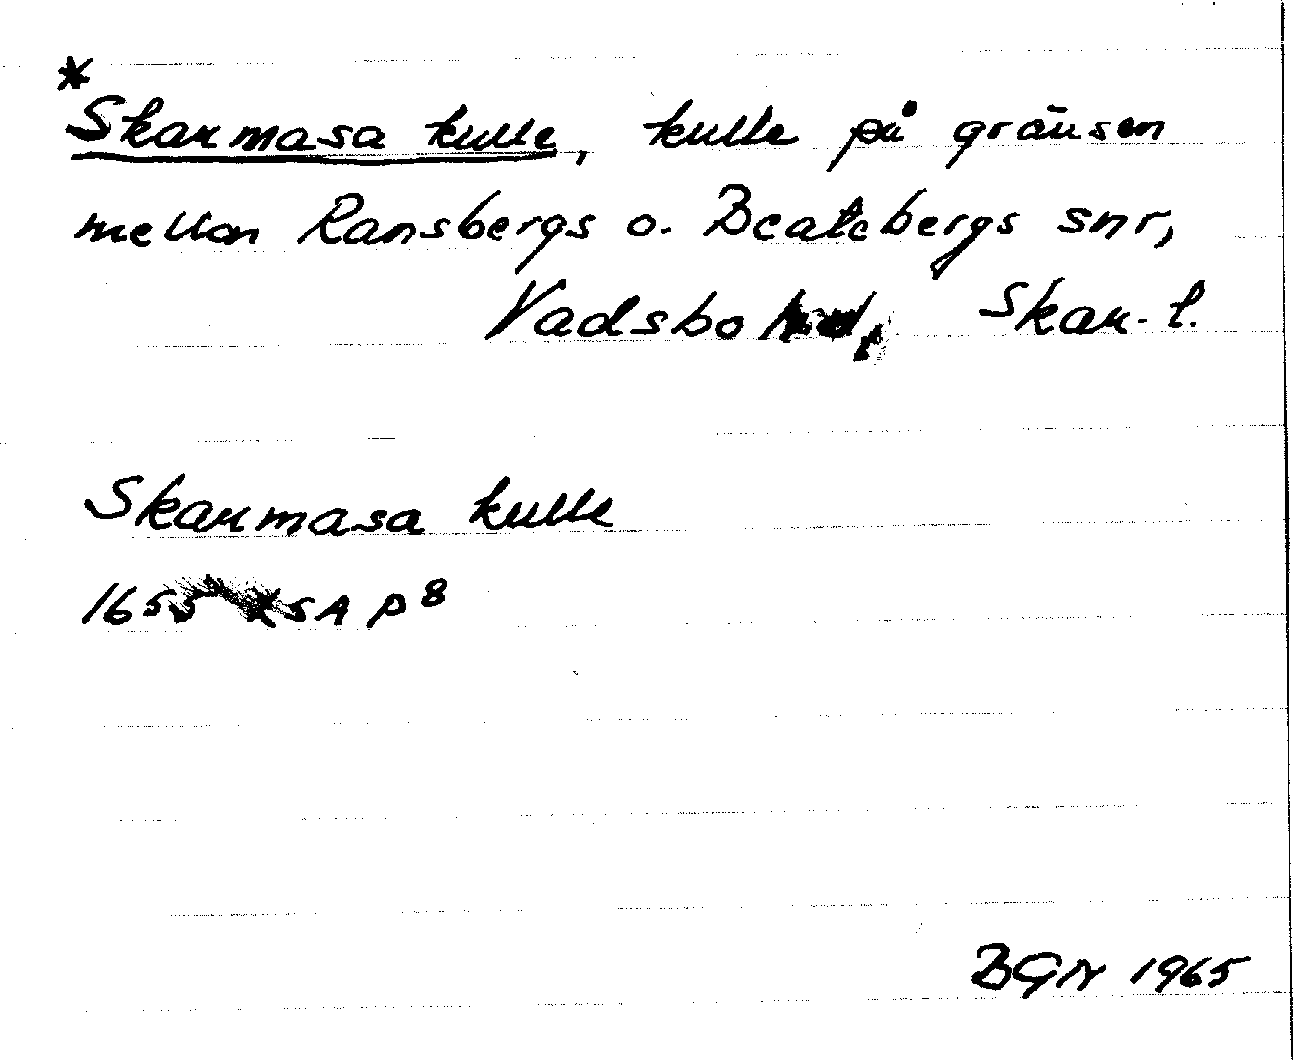 *
Skarmasa kulle, kulle på gränsen
mellan Ransbergs o. Beatebergs snr,
Vadsbo hd, Skar. l.
Skarmasa kulle
1655 LSA P 8
BGN 1965